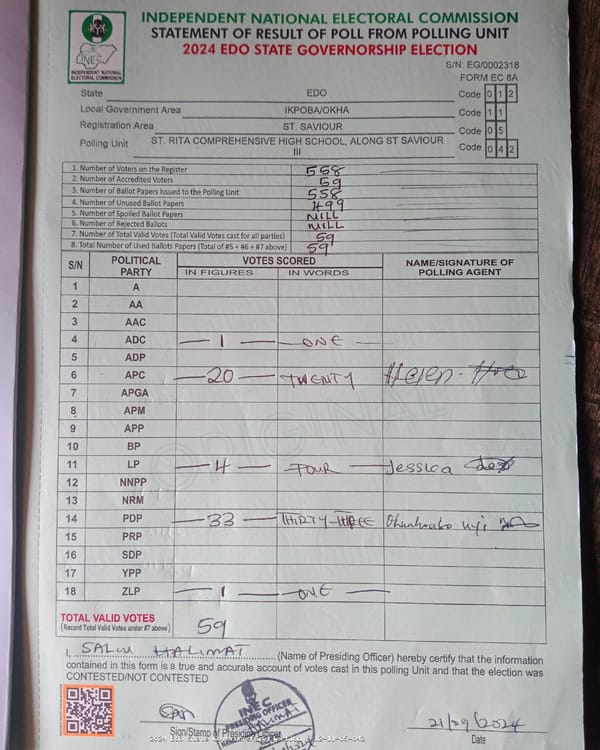 INDEPENDENT NATIONAL ELECTORAL COMMISSION
STATEMENT OF RESULT OF POLL FROM POLLING UNIT
2024 EDO STATE GOVERNORSHIP ELECTION
INEC
INDEPENDENT NATIONAL ELECTORAL COMMISSION
S/N: EG/0002318
FORM EC 8A
State EDO Code 0 1 2
Local Government Area IKPOBA/OKHA Code 1 1
Registration Area ST. SAVIOUR Code 0 5
Polling Unit ST. RITA COMPREHENSIVE HIGH SCHOOL, ALONG ST SAVIOUR III Code 0 4 2
1. Number of Voters on the Register 558
2. Number of Accredited Voters 59
3. Number of Ballot Papers Issued to the Polling Unit 558
4. Number of Unused Ballot Papers 499
5. Number of Spoiled Ballot Papers NILL
6. Number of Rejected Ballots NILL
7. Number of Total Valid Votes (Total Valid Votes cast for all parties) 59
8. Total Number of Used Ballots Papers (Total of #5 + #6 + #7 above) 59
S/N POLITICAL PARTY VOTES SCORED NAME/SIGNATURE OF POLLING AGENT
IN FIGURES IN WORDS
1 A
2 AA
3 AAC
4 ADC 1 ONE
5 ADP
6 APC 20 TWENTY Helen
7 APGA
8 APM
9 APP
10 BP
11 LP 4 FOUR Jessica
12 NNPP
13 NRM
14 PDP 33 THIRTY-THREE
15 PRP
16 SDP
17 YPP
18 ZLP 1 ONE
ORIGINAL
TOTAL VALID VOTES 59
(Record Total Valid Votes under #7 above)
I, SALIU HALIMAT (Name of Presiding Officer) hereby certify that the information
contained in this form is a true and accurate account of votes cast in this polling Unit and that the election was
CONTESTED/NOT CONTESTED
INEC
PRESIDING OFFICER
21/09/2024
Sign/Stamp of Presiding Officer
Date